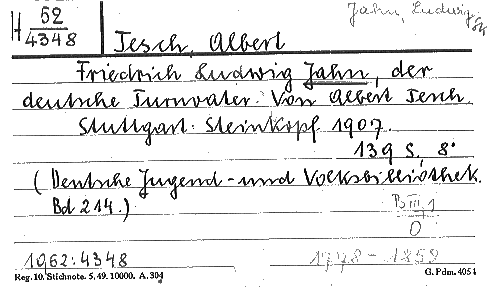 H 52
4348
Jahn, Ludwig
Tesch, Albert
Friedrich Ludwig Jahn, der
deutsche Turnvater. Von Albert Tesch.
Stuttgart: Steinkopf 1907.
139 S. 8°
(Deutsche Jugend- und Volksbibliothek.
Bd 214.)
B III, 1
0
1962:4348
1778-1852
Reg. 10. Stichnote. 5. 49. 10000. A. 304
G. Fdm. 4054